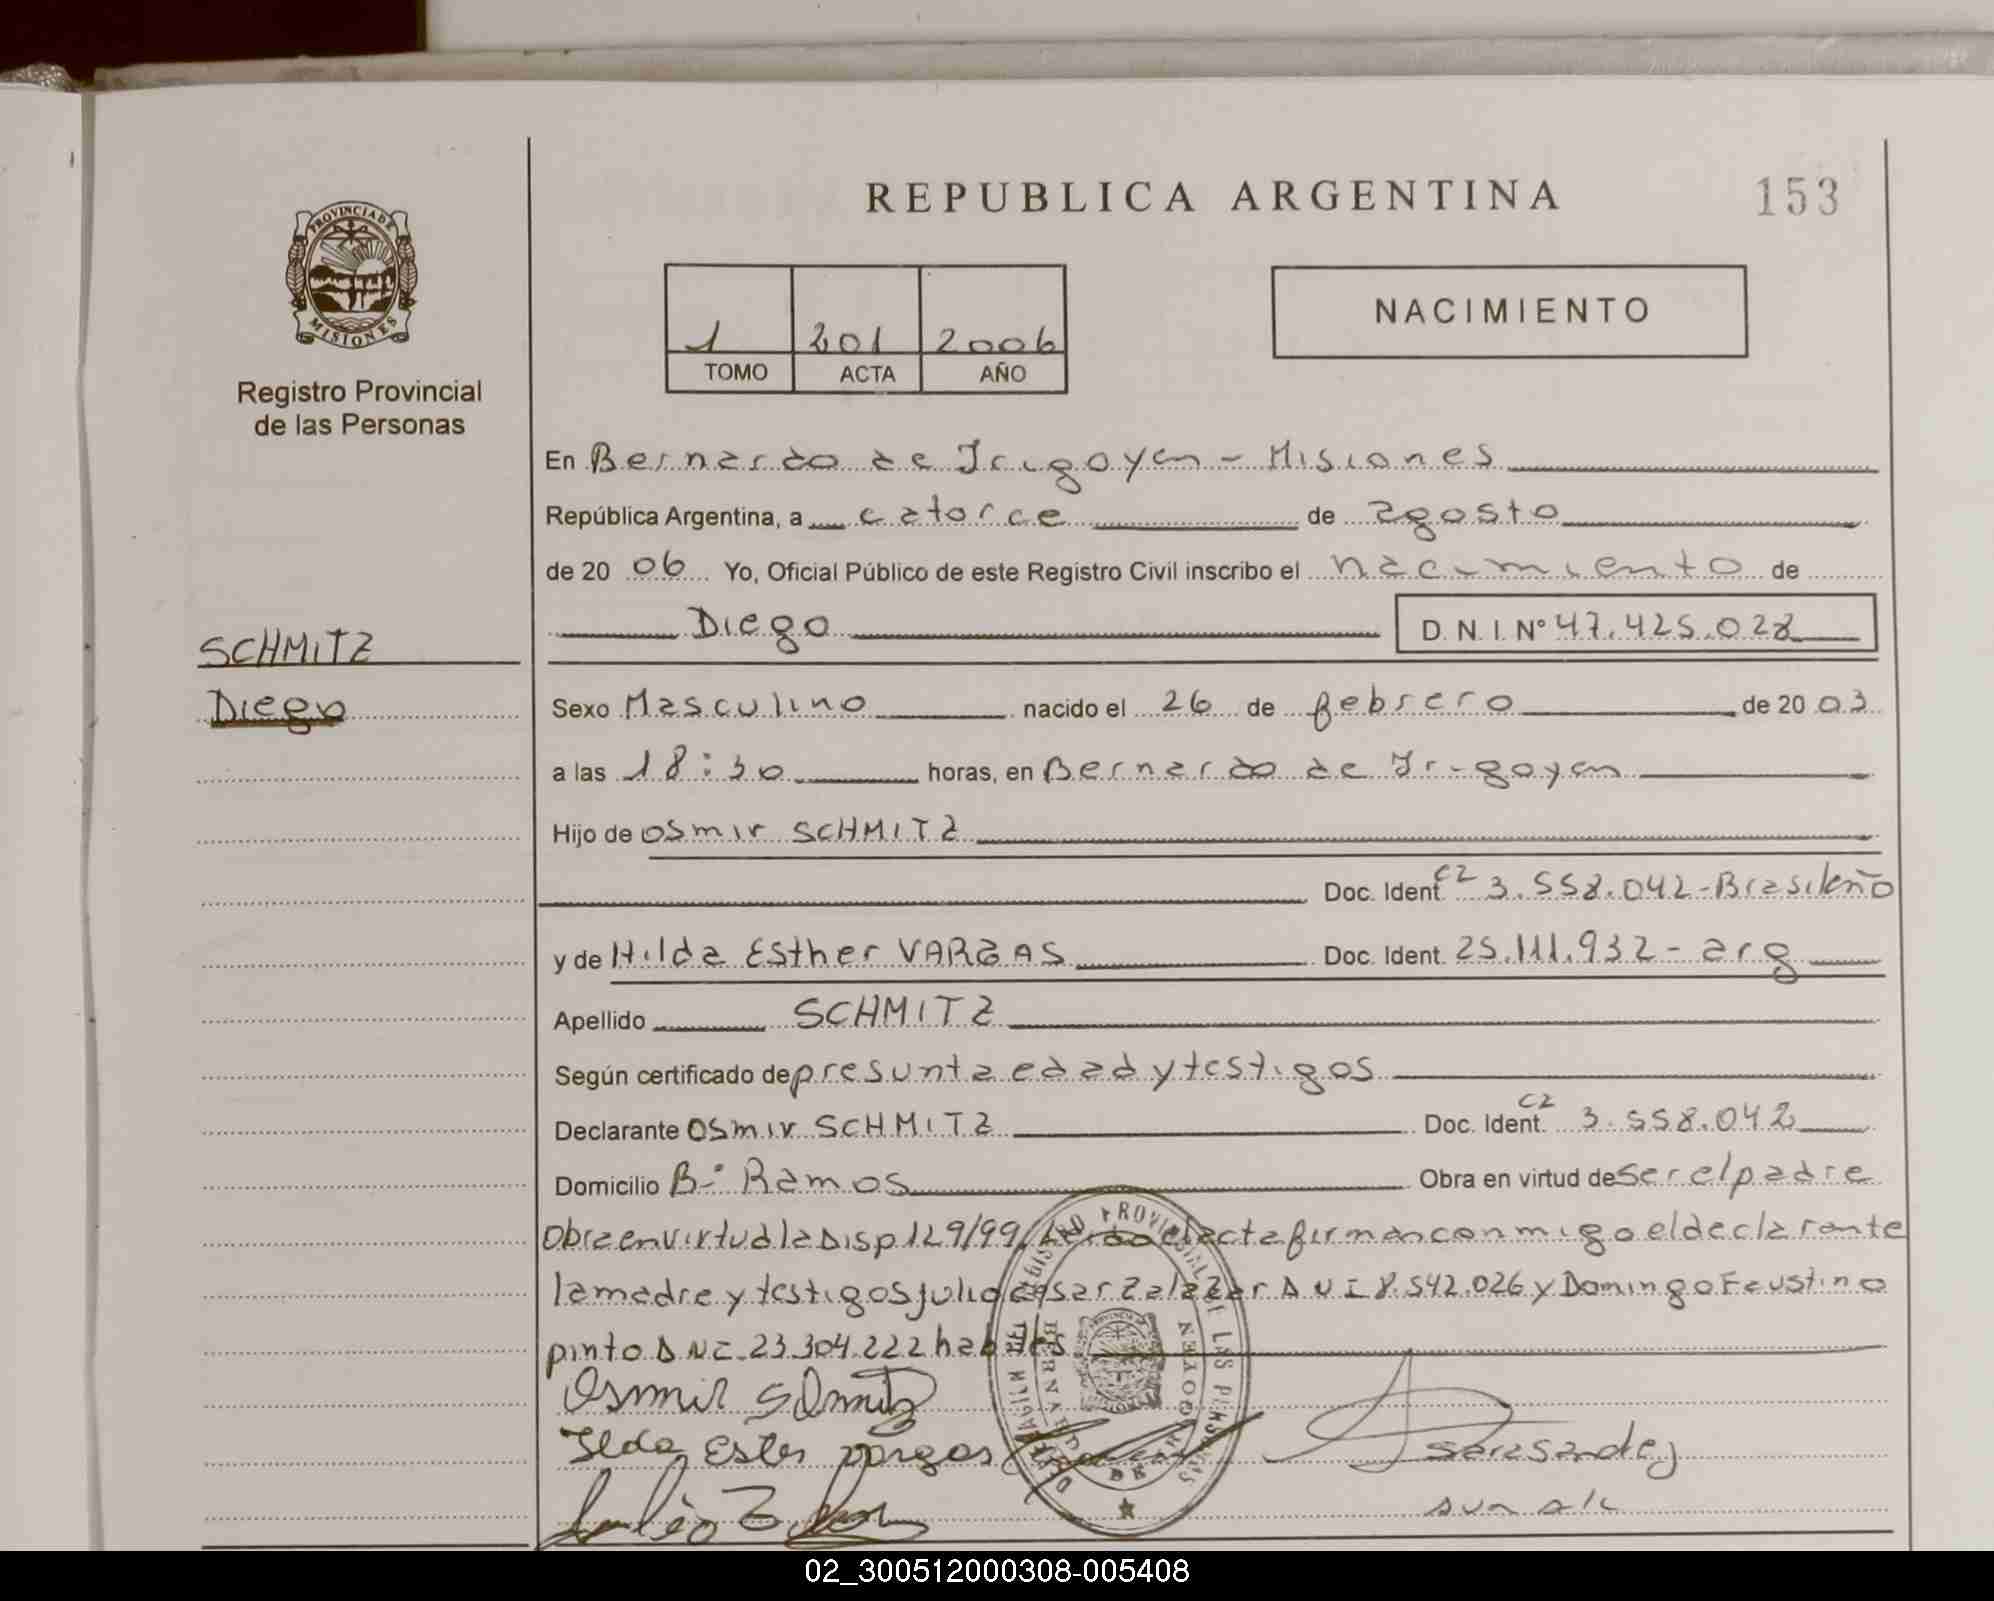 REPUBLICA ARGENTINA
153
PROVINCIA DE
MISIONES
Registro Provincial
de las Personas
1 201 2006
TOMO ACTA AÑO
NACIMIENTO
En Bernardo de Irigoyen - Misiones
República Argentina, a catorce de agosto
de 20 06 Yo, Oficial Público de este Registro Civil inscribo el nacimiento de
Diego D.N.I. N° 47.425.028
SCHMITZ
Diego
Sexo Masculino nacido el 26 de febrero de 20 03
a las 18:30 horas, en Bernardo de Irigoyen
Hijo de Osmir SCHMITZ
Doc. Ident. CI 3.558.042 - Brasileño
y de Hilda Esther VARGAS Doc. Ident. 25.111.932 - arg
Apellido SCHMITZ
Según certificado de presunta edad y testigos
Declarante Osmir SCHMITZ Doc. Ident. CI 3.558.042
Domicilio B° Ramos Obra en virtud de ser el padre
Obra en virtud la Disp 129/99. Leido el acta firman conmigo el declarante
la madre y testigos julio cesar zalazar DNI 8.542.026 y Domingo Faustino
pinto DNI 23.304.222 habiles
Osmir Schmitz
Ilda Ester vargas
Julio Zalazar
02_300512000308-005408